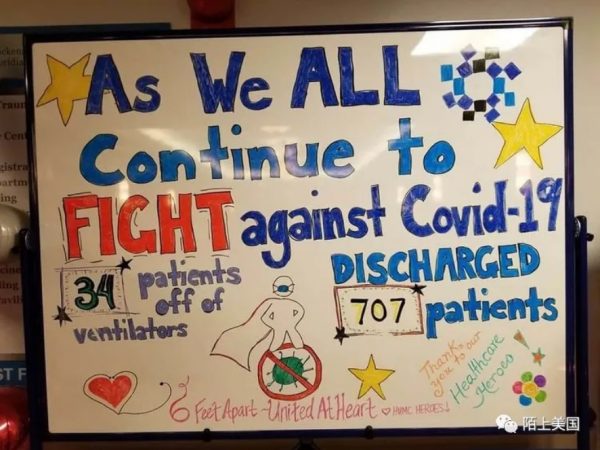 As We ALL
Continue to
FIGHT against Covid-19
34 patients
off of
ventilators
DISCHARGED
707 patients
Thank-
you to our
Healthcare
Heroes
6 Feet Apart ~ United At Heart
HVMC HEROES
陌上美国